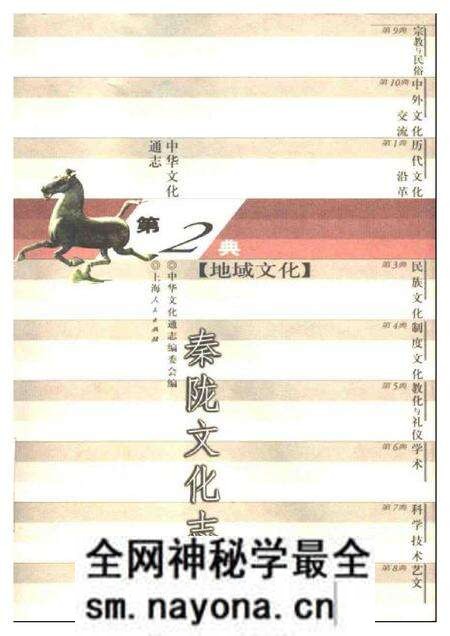 第9典
宗教与民俗
第10典
中外文化
交流
第1典
历代文化
沿革
中华文化
通志
第2典
【地域文化】
◎中华文化通志编委会编
◎上海人民出版社
秦陇文化志
第3典
民族文化
第4典
制度文化
第5典
教化与礼仪
第6典
学术
第7典
科学技术
第8典
艺文
全网神秘学最全
sm.nayona.cn